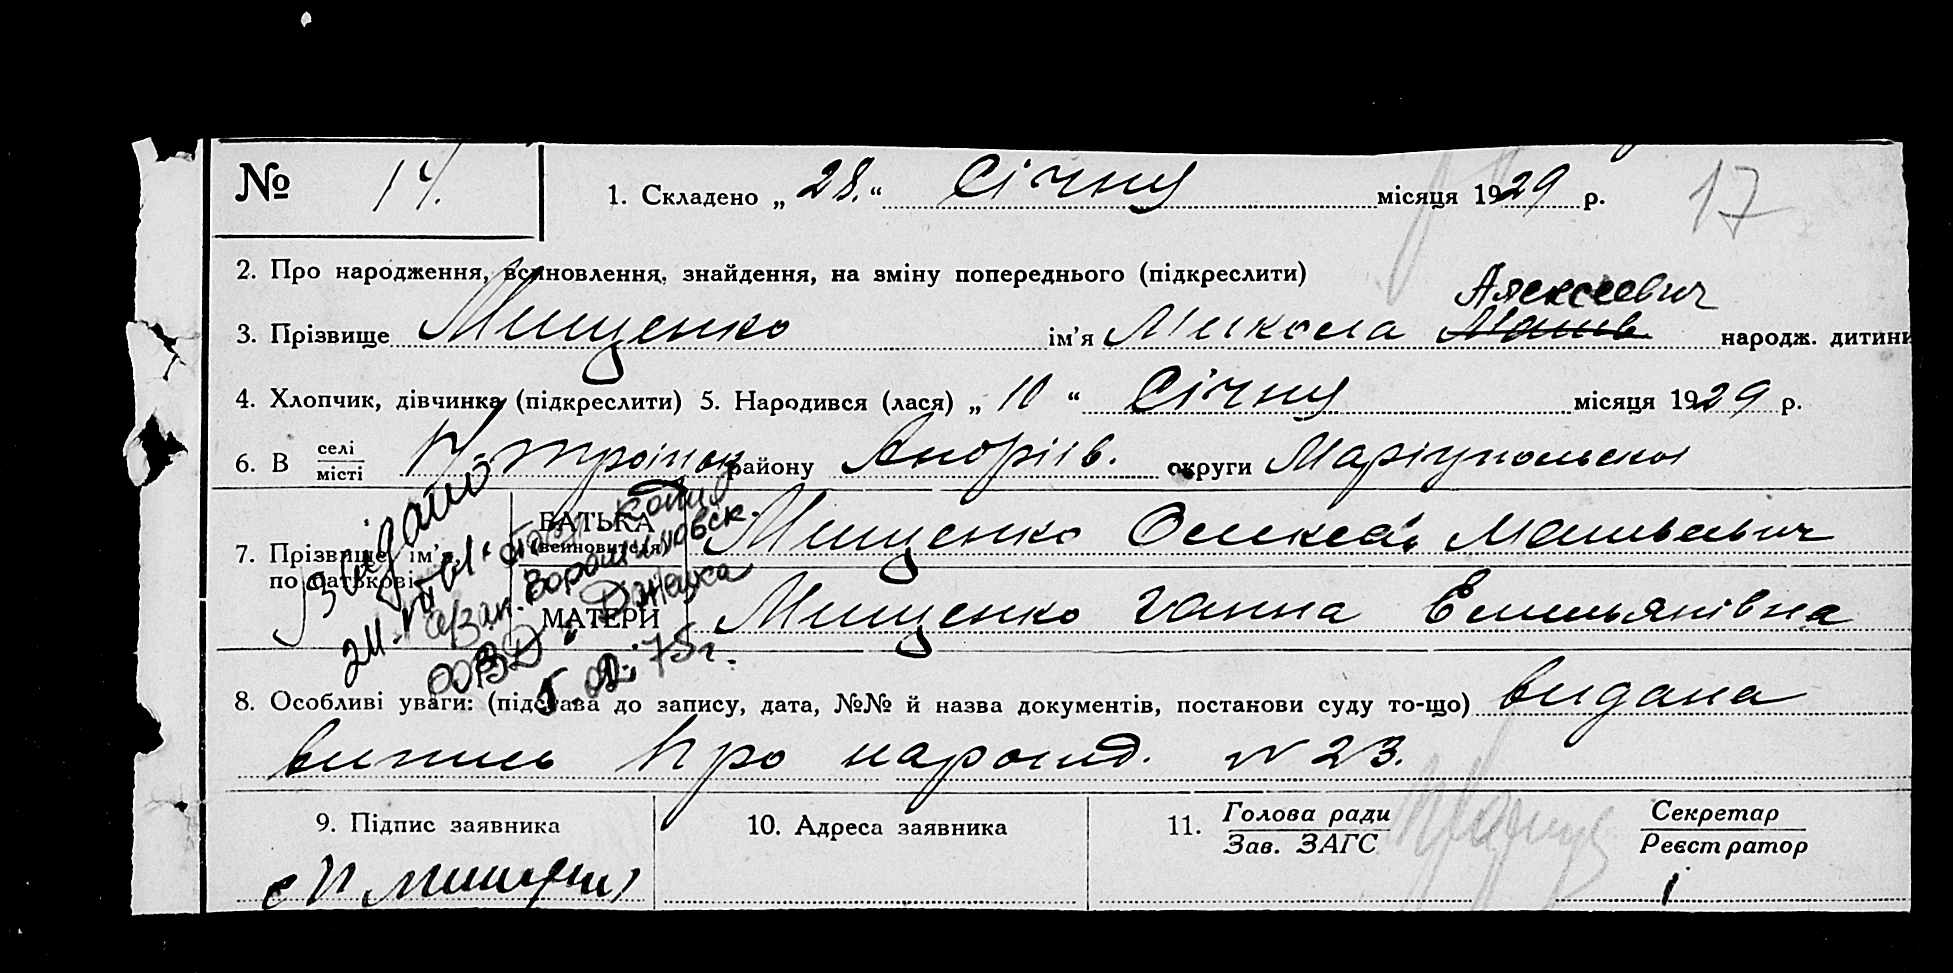 № 14. 1. Складено „ 28. “ Січну місяця 1929 р. 17
2. Про народження, всиновлення, знайдення, на зміну попереднього (підкреслити)
Алексеевич
3. Прізвище Мищенко ім'я Микола народж. дитини
4. Хлопчик, дівчинка (підкреслити) 5. Народився (лася) „ 10 “ Січну місяця 1929 р.
6. В селі місті району Андріїв. округи Маріупольськоі
7. Прізвище, ім'я, по батькові
БАТЬКА (всиновителя) Мищенко Олексій Матвеевич
МАТЕРИ Мищенко Ганна Емельянівна
видано
ОВД
Донецка
75г.
8. Особливі уваги: (підстава до запису, дата, №№ й назва документів, постанови суду то-що) видана
випись про народ. N 23.
9. Підпис заявника 10. Адреса заявника 11. Голова ради Зав. ЗАГС Секретар Реєстратор